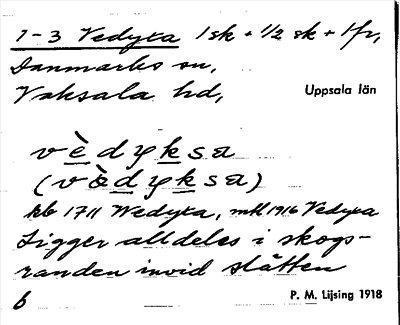 1-3 Vedyxa 1 sk + 1/2 sk + 1 fr,
Danmarks sn,
Vaksala hd, Uppsala län
vèdyksa
(vædyksa)
kb 1711 Wedyxa, mtl 1916 Vedyxa
Ligger alldeles i skogs-
randen invid slätten
6 P. M. Lijsing 1918